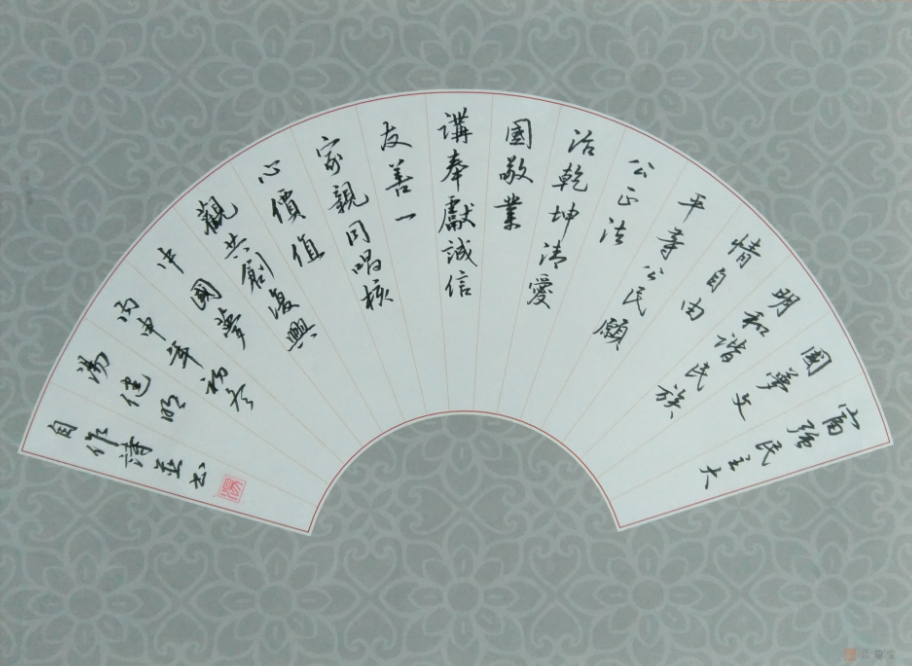 富强民主大
國夢文
明和谐民族
情自由
平等公民願
公正法
治乾坤清愛
國敬業
講奉獻誠信
友善一
家親同唱核
心價值
觀共創復興
中國夢
丙申年初冬
湯建明
自作詩並书